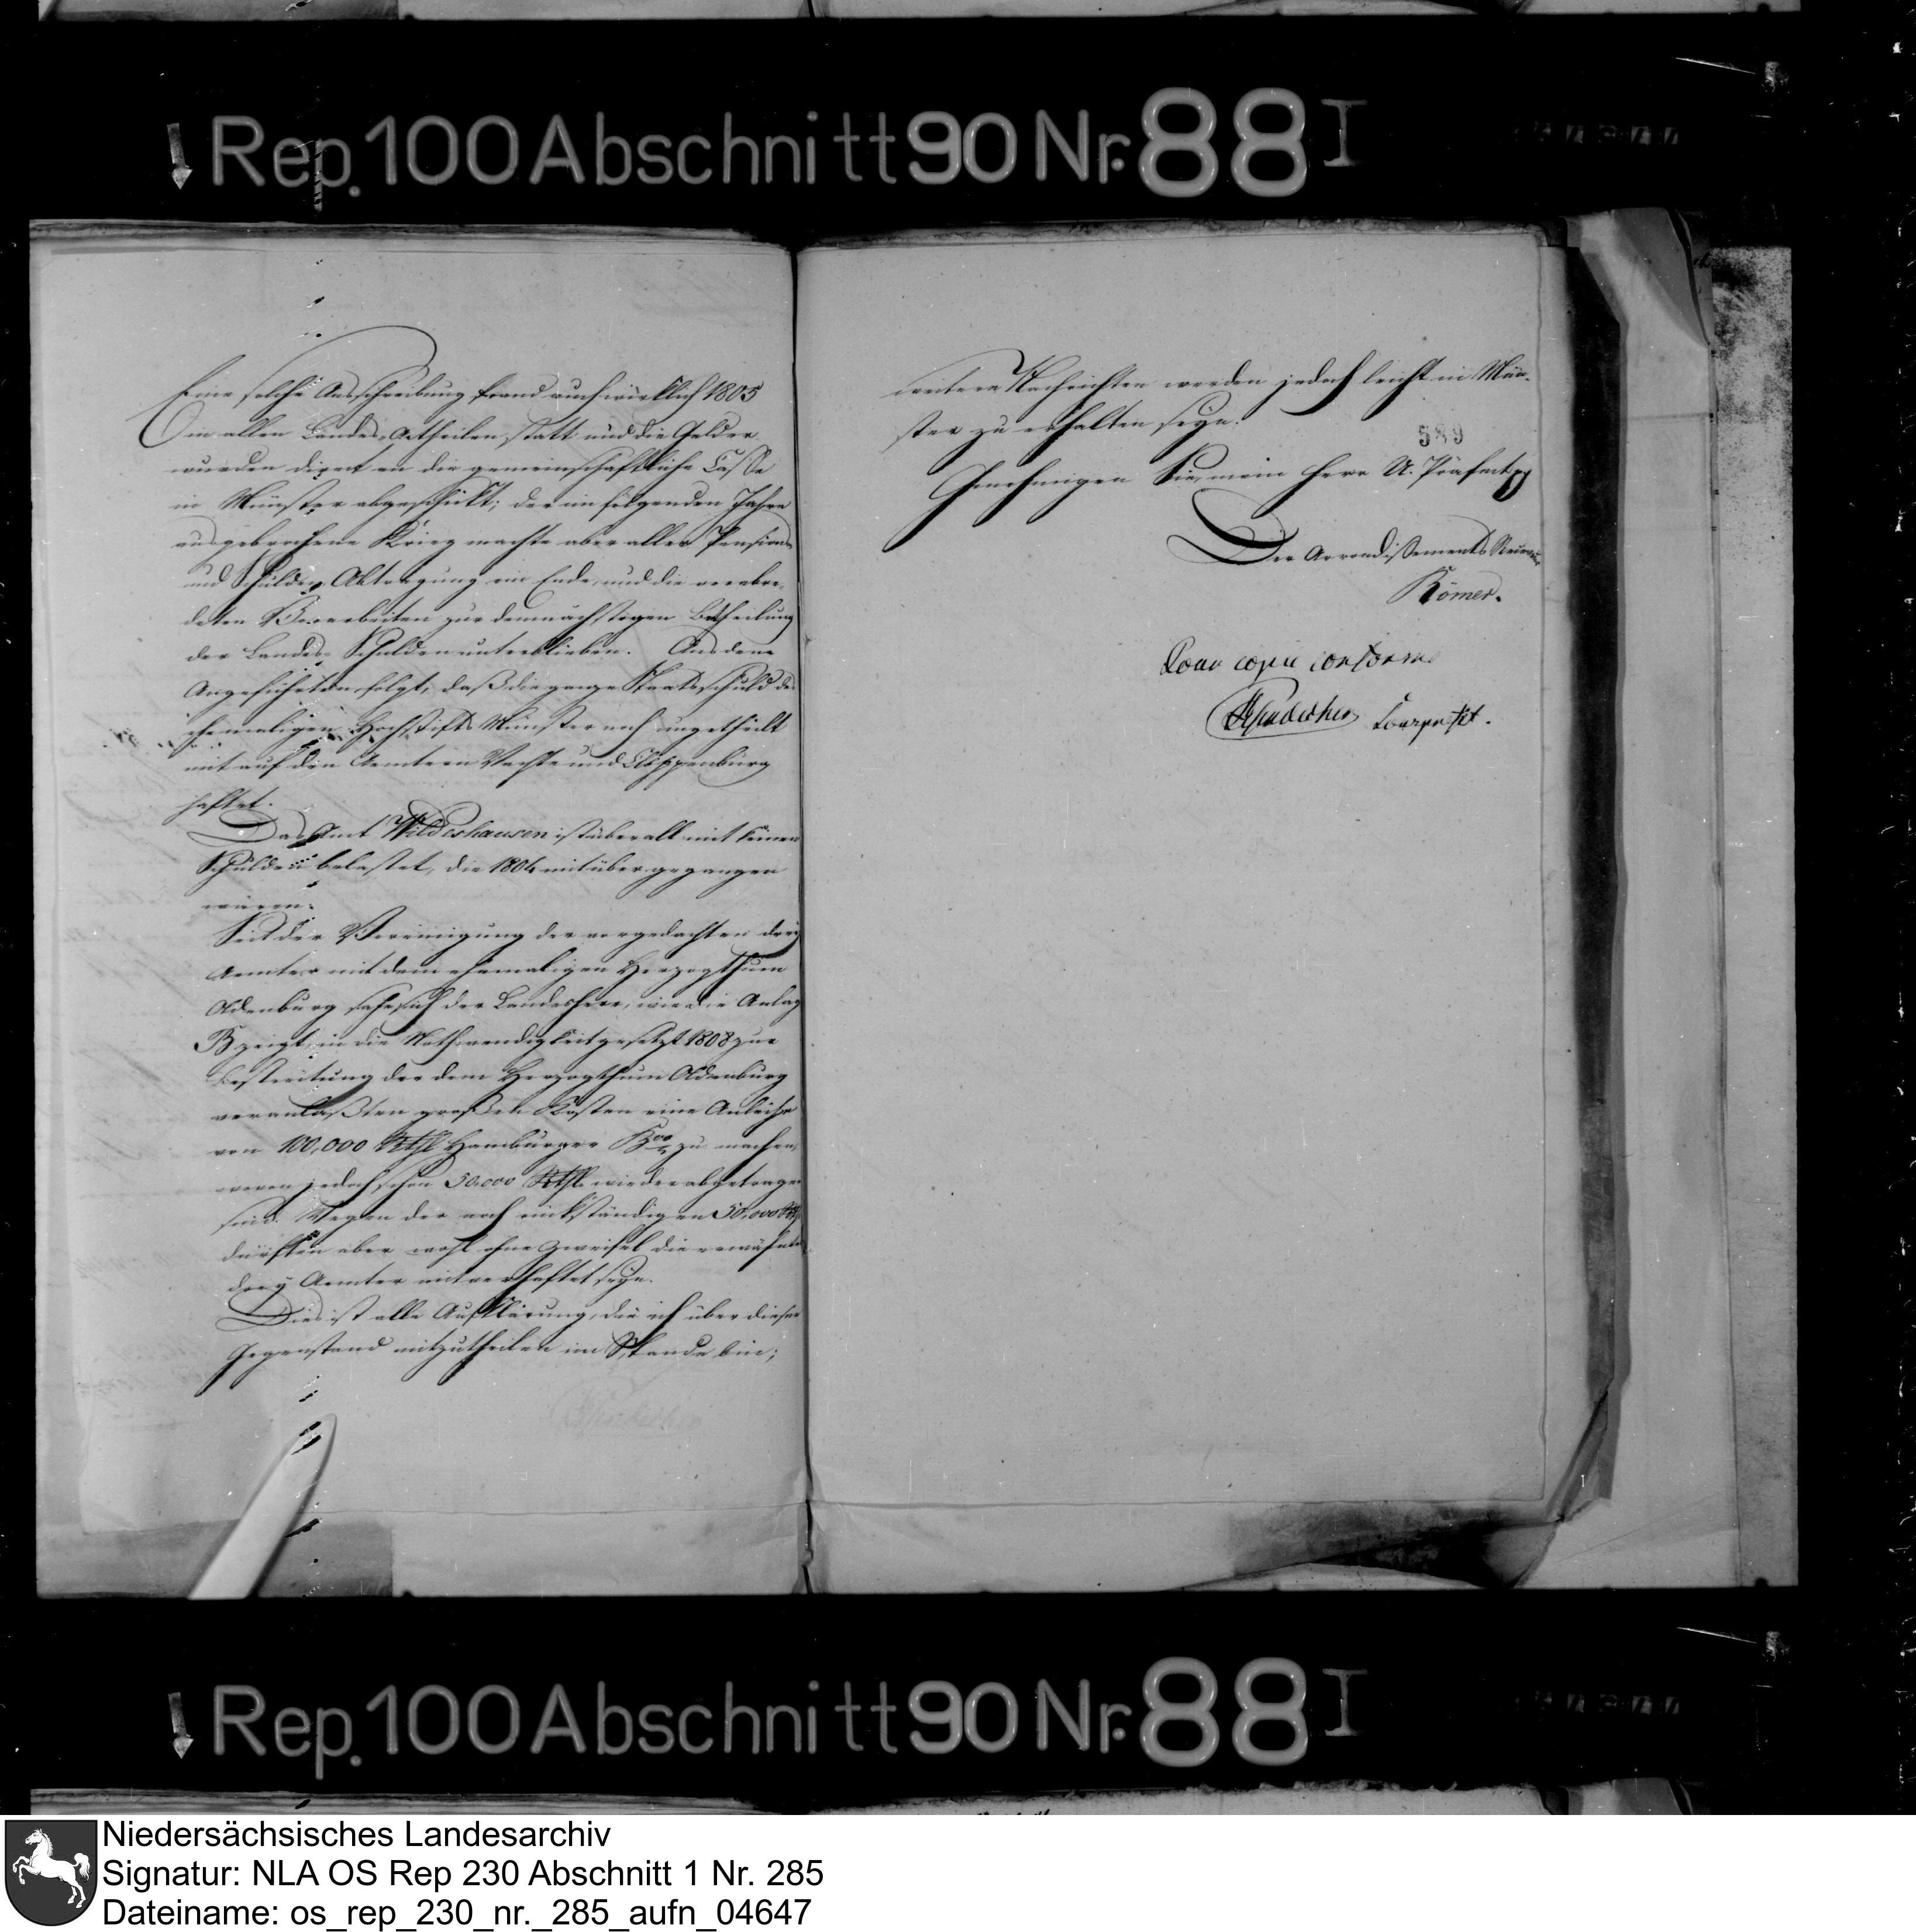 Rep. 100 Abschnitt 90 Nr. 88 I
Eine solche Ausschreibung fand auch wirklich 1805
in allen Landes-Abtheilen statt und die Gelder
wurden direct an die gemeinschaftliche Casse
in Münster abgeschickt; der im folgenden Jahre
ausgebrochene Krieg machte aber aller Pensions
und Schulden Abtragung ein Ende, und die verabre-
deten Vorarbeiten zur demnächstigen Vertheilung
der Landes-Schulden unterblieben. Aus dem
Angeführten folgt, daß die ganze Staatsschuld des
ehemaligen Hochstifts Münster noch ungetheilt
mit auf den Aemtern Vechte und Cloppenburg
haftet.
Das Amt Wildeshausen ist überall mit keinen
Schulden belastet, die 1804 mit übergegangen
wären.
Seit der Vereinigung der vorgedachten drey
Aemter mit dem ehemaligen Herzogthum
Oldenburg sahe sich der Landesherr, wie die Anlag
B zeigt, in die Nothwendigkeit gesetzt 1808 zur
Bestreitung der dem Herzogthum Oldenburg
veranlaßten großen Kosten eine Anleihe
von 100,000 Rthl Hamburger Bco zu machen,
wovon jedoch schon 50,000 Rthl. wieder abgetragen
sind. Wegen der noch rückständigen 50,000 Rthl
dürften aber wohl ohne Zweifel die erwähnten
drey Aemter mit verhaftet seyn.
Dies ist alle Aufklärung, die ich über diesen
Gegenstand mitzutheilen im Stande bin;
weitere Nachrichten werden jedoch leicht in Mün-
ster zu erhalten seyn.
589
Genehmigen Sie, mein Herr U. Präfect pp
Der Arrondissements
Römer.
Pour copie conforme
Rep. 100 Abschnitt 90 Nr. 88 I
Niedersächsisches Landesarchiv
Signatur: NLA OS Rep 230 Abschnitt 1 Nr. 285
Dateiname: os_rep_230_nr._285_aufn_04647